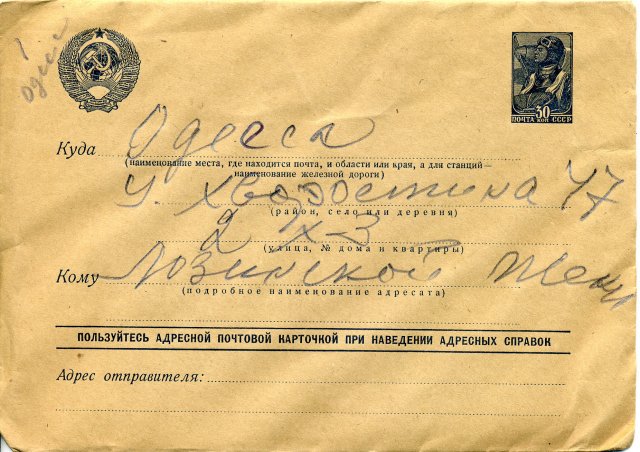 1
один
30
ПОЧТА КОП СССР
Куда Одесса
(наименование места, где находится почта, и области или края, а для станций—
наименование железной дороги)
у. Хворостина 47
(район, село или деревня)
2 х-3
(улица, № дома и квартиры)
Кому Лозинской Жене
(подробное наименование адресата)
ПОЛЬЗУЙТЕСЬ АДРЕСНОЙ ПОЧТОВОЙ КАРТОЧКОЙ ПРИ НАВЕДЕНИИ АДРЕСНЫХ СПРАВОК
Адрес отправителя: